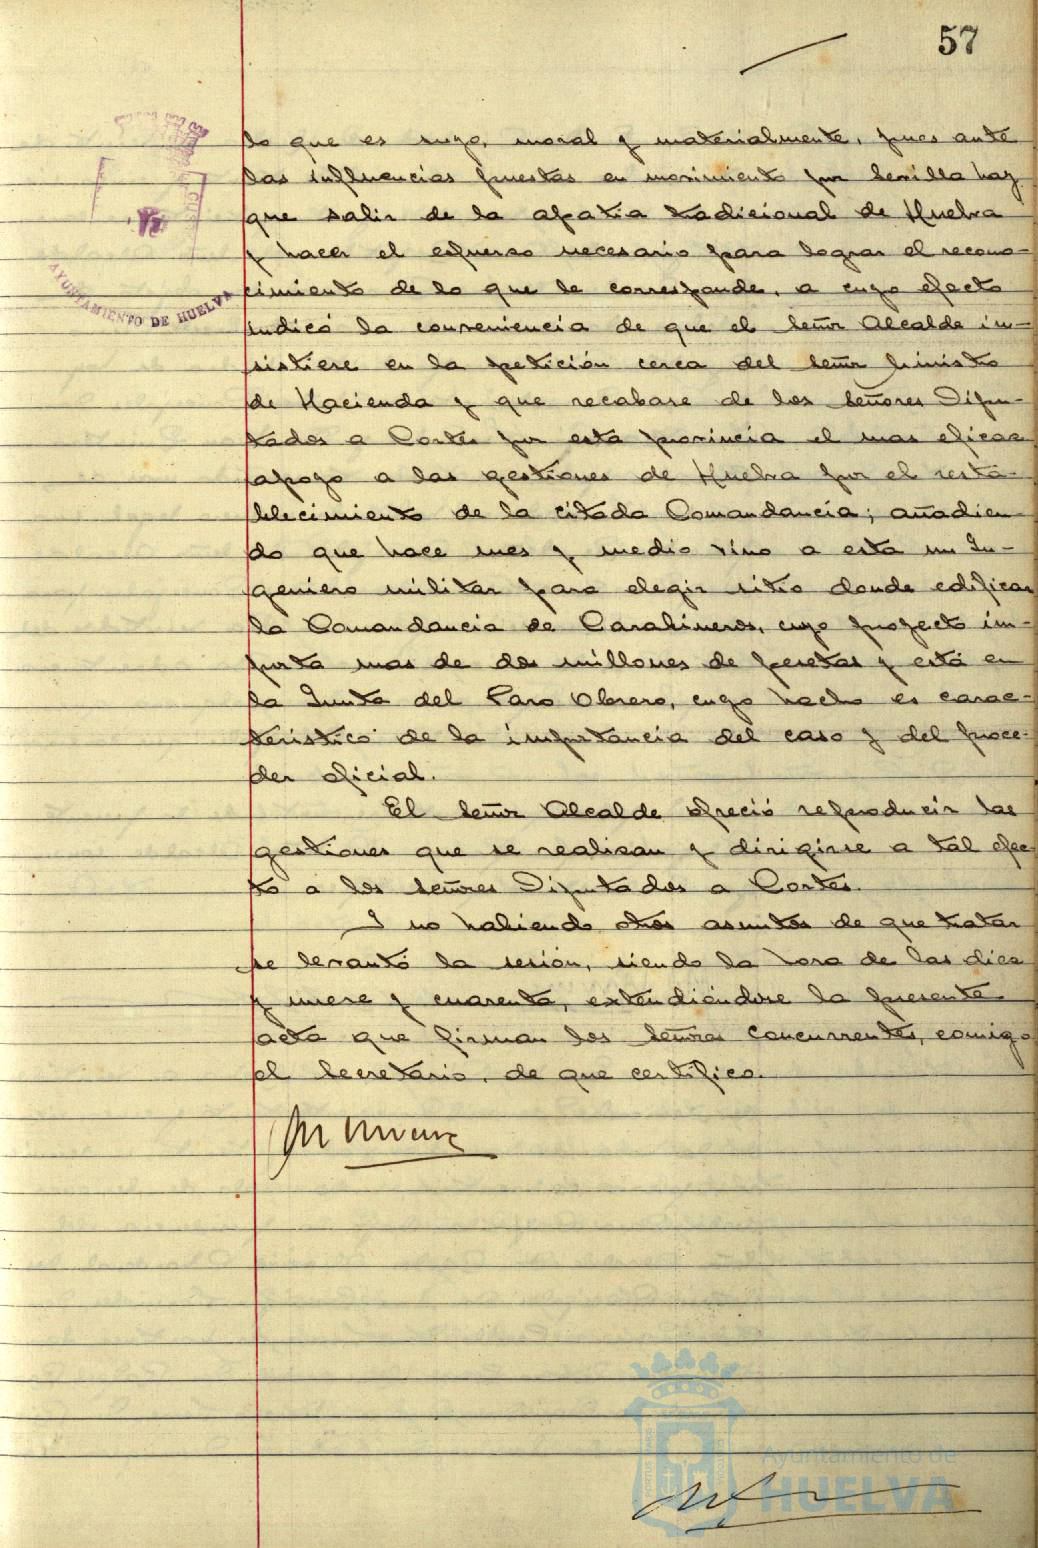 57
lo que es suyo, moral y materialmente, pues ante
las influencias puestas en movimiento por Sevilla hay
que salir de la apatia tradicional de Huelva
y hacer el esfuerzo necesario para lograr el recono-
cimiento de lo que le corresponde, a cuyo efecto
indicó la conveniencia de que el Señor Alcalde in-
sistiese en la petición cerca del Señor Ministro
de Hacienda y que recabase de los Señores Dipu-
tados a Cortes por esta provincia el mas eficaz
apoyo a las gestiones de Huelva por el resta-
blecimiento de la citada Comandancia; añadien-
do que hace mes y medio vino a esta un In-
geniero militar para elegir sitio donde edificar
la Comandancia de Carabineros, cuyo proyecto im-
porta mas de dos millones de pesetas y está en
la Junta del Paro Obrero, cuyo hecho es carac-
teristico de la importancia del caso y del proce-
der oficial.
El Señor Alcalde ofreció reproducir las
gestiones que se realizan y dirigirse a tal efec-
to a los Señores Diputados a Cortes.
Y no habiendo otros asuntos de que tratar
se levantó la sesión, siendo la hora de las diez
y nueve y cuarenta, extendiéndose la presente
acta que firman los Señores Concurrentes, comigo
el Secretario, de que certifico.
AYUNTAMIENTO DE HUELVA
Ayuntamiento de
HUELVA